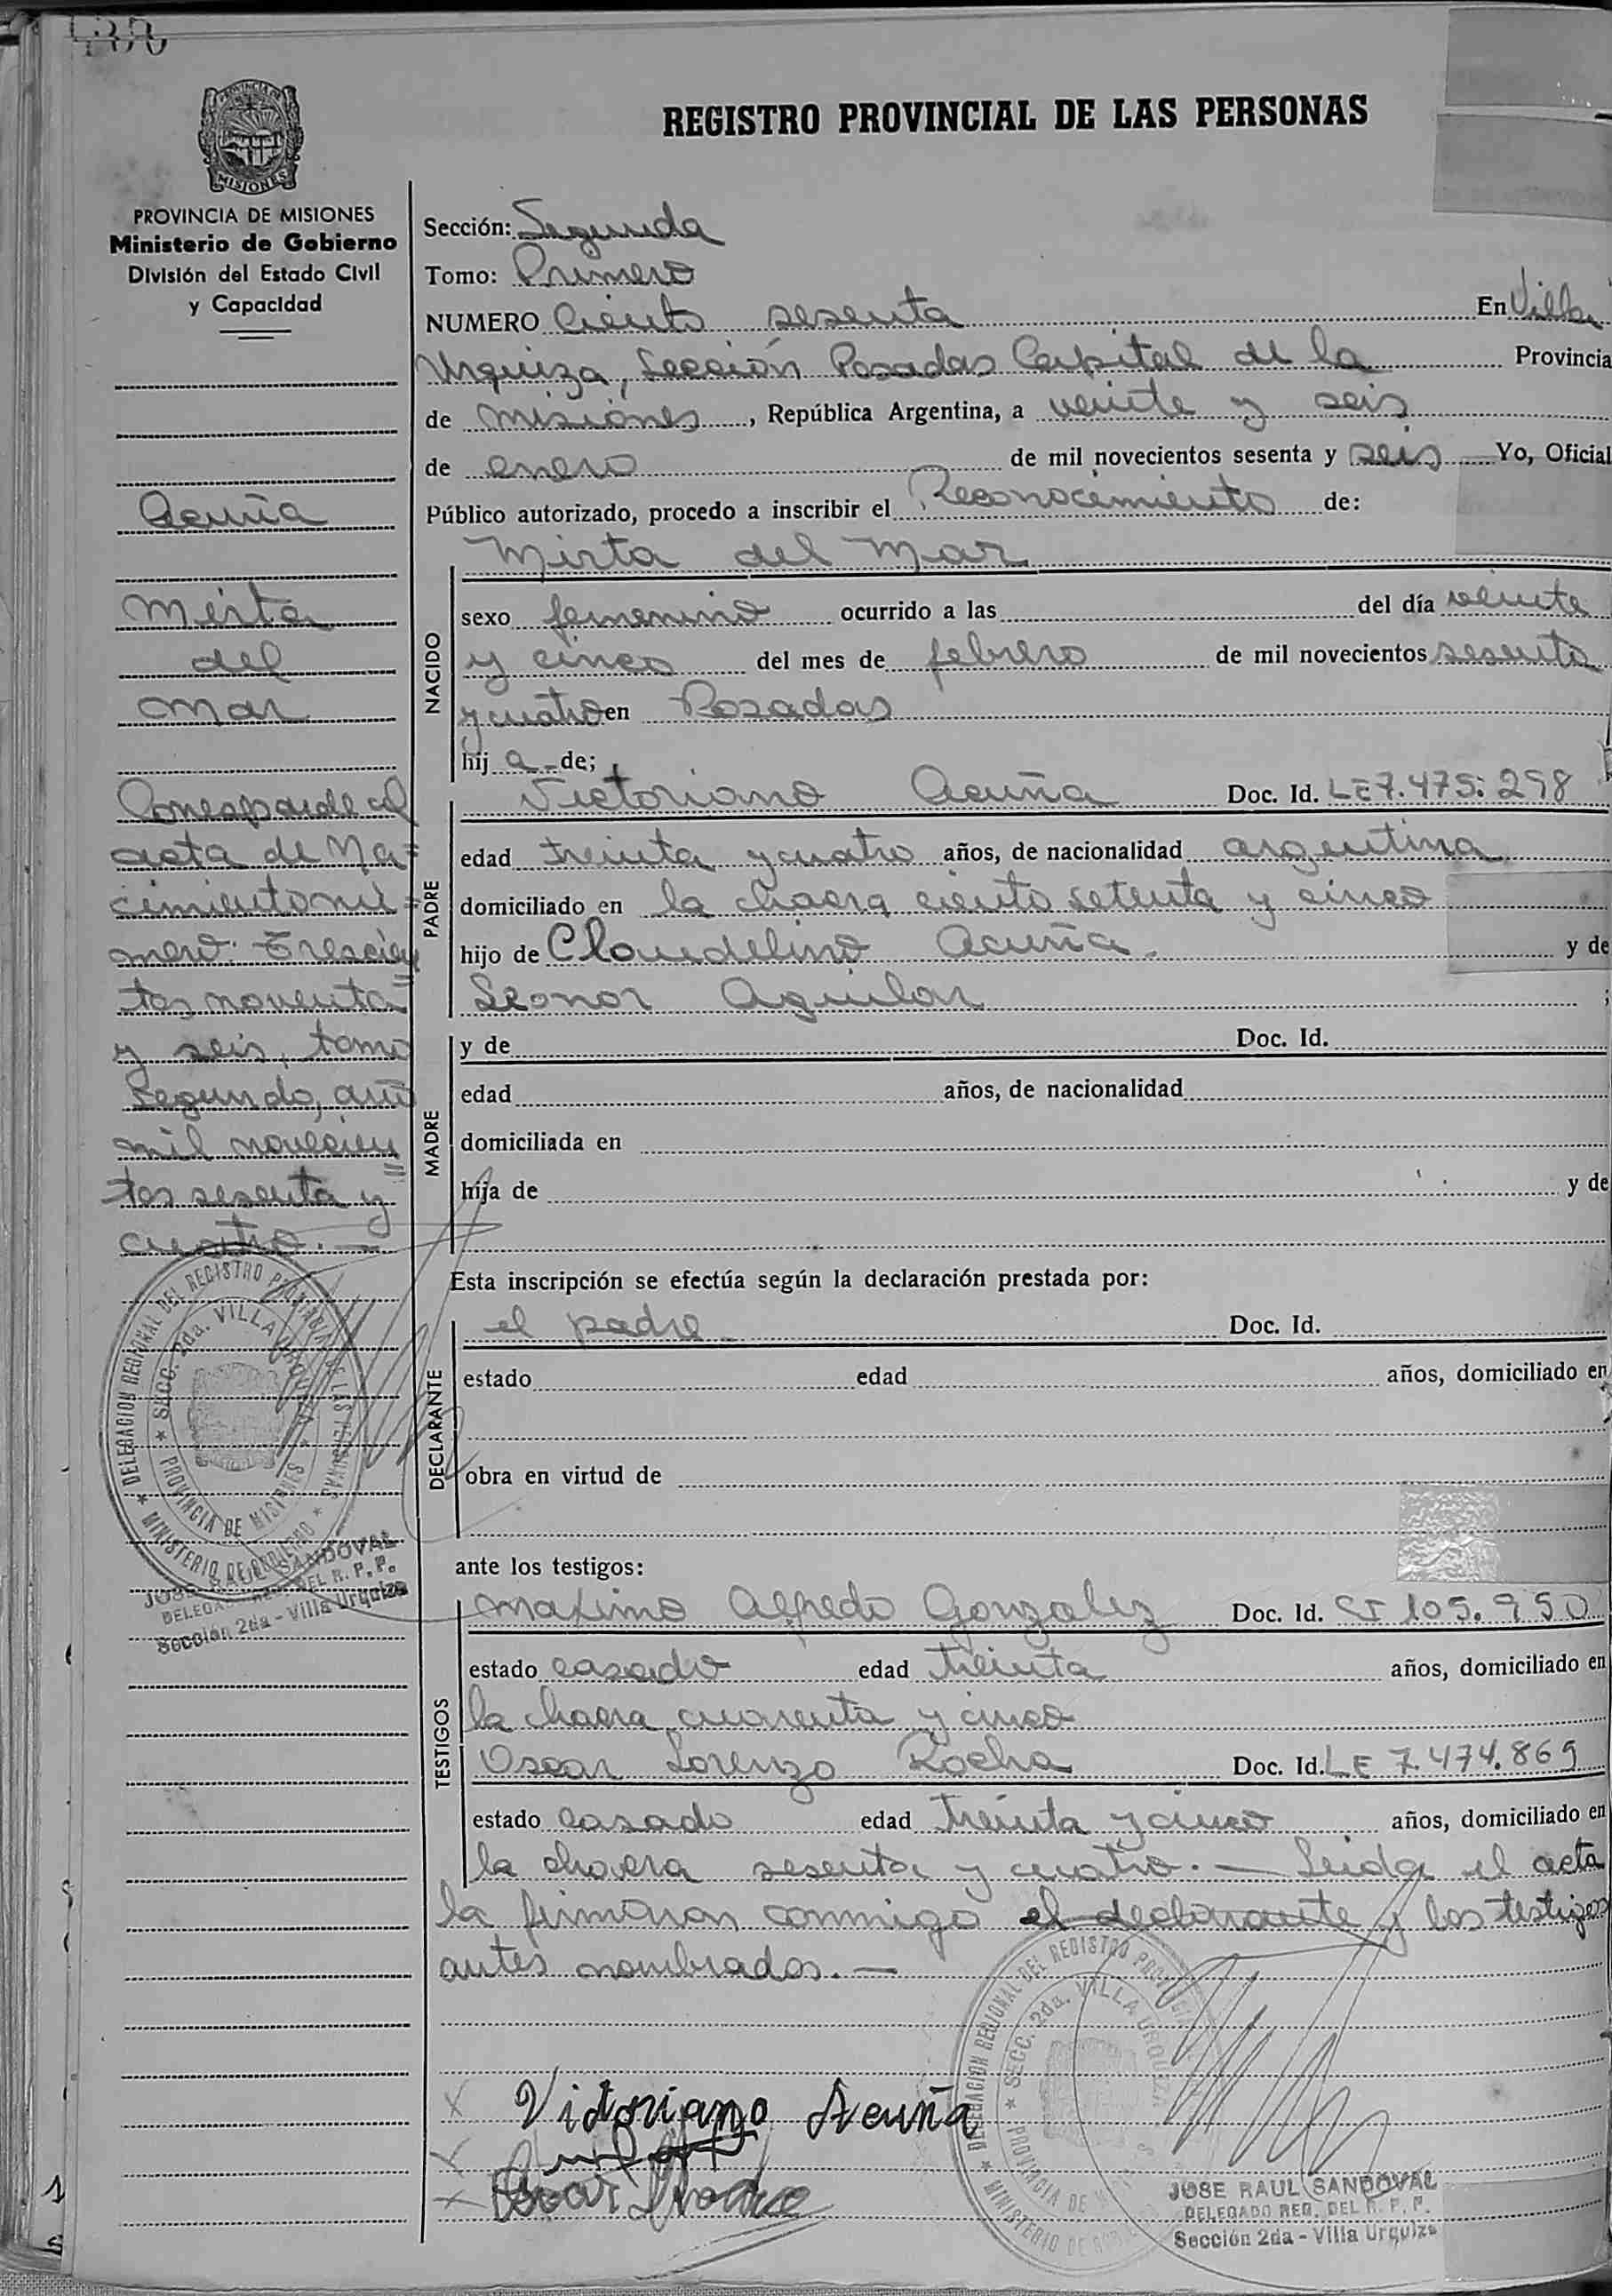 REGISTRO PROVINCIAL DE LAS PERSONAS
MISIONES
PROVINCIA DE MISIONES
Ministerio de Gobierno
División del Estado Civil
y Capacidad
Acuña
Mirta
del
Mar
Corresponde al
acta de Na=
cimiento nú=
mero: Trescien=
tos noventa
y seis, tomo
Segundo, año
mil novecien=
tos sesenta y
cuatro. —
DELEGACION REGIONAL DEL REGISTRO PROVINCIAL DE LAS PERSONAS
SECC. 2da. VILLA URQUIZA
PROVINCIA DE MISIONES
MINISTERIO DE GOBIERNO
JOSE RAUL SANDOVAL
DELEGADO REG. DEL R. P. P.
Sección 2da - Villa Urquiza
Sección: Segunda
Tomo: Primero
NUMERO Ciento sesenta En Villa
Urquiza, Sección Posadas Capital de la Provincia
de Misiones, República Argentina, a veinte y seis
de enero de mil novecientos sesenta y seis Yo, Oficial
Público autorizado, procedo a inscribir el Reconocimiento de:
Mirta del Mar
NACIDO
sexo femenino ocurrido a las del día veinte
y cinco del mes de febrero de mil novecientos sesenta
y cuatro en Posadas
hij a - de;
PADRE
Victoriano Acuña Doc. Id. LE 7.475.298
edad treinta y cuatro años, de nacionalidad argentina
domiciliado en la chacra ciento setenta y cinco
hijo de Claudelino Acuña - y de
Leonor Aguilar ;
MADRE
y de Doc. Id.
edad años, de nacionalidad
domiciliada en
hija de y de
Esta inscripción se efectúa según la declaración prestada por:
DECLARANTE
el padre - Doc. Id.
estado edad años, domiciliado en
obra en virtud de
ante los testigos:
TESTIGOS
Maximo Alfredo Gonzalez Doc. Id. CI 105.950
estado casado edad treinta años, domiciliado en
la chacra cuarenta y cinco
Oscar Lorenzo Rocha Doc. Id. LE 7.474.869
estado casado edad treinta y cinco años, domiciliado en
la chacra sesenta y cuatro. — Leida el acta
la firmaron conmigo el declarante y los testigos
antes nombrados. —
Victoriano Acuña
DELEGACION REGIONAL DEL REGISTRO
SECC. 2da. VILLA URQUIZA
PROVINCIA DE
MINISTERIO DE
JOSE RAUL SANDOVAL
DELEGADO REG. DEL R. P. P.
Sección 2da - Villa Urquiza